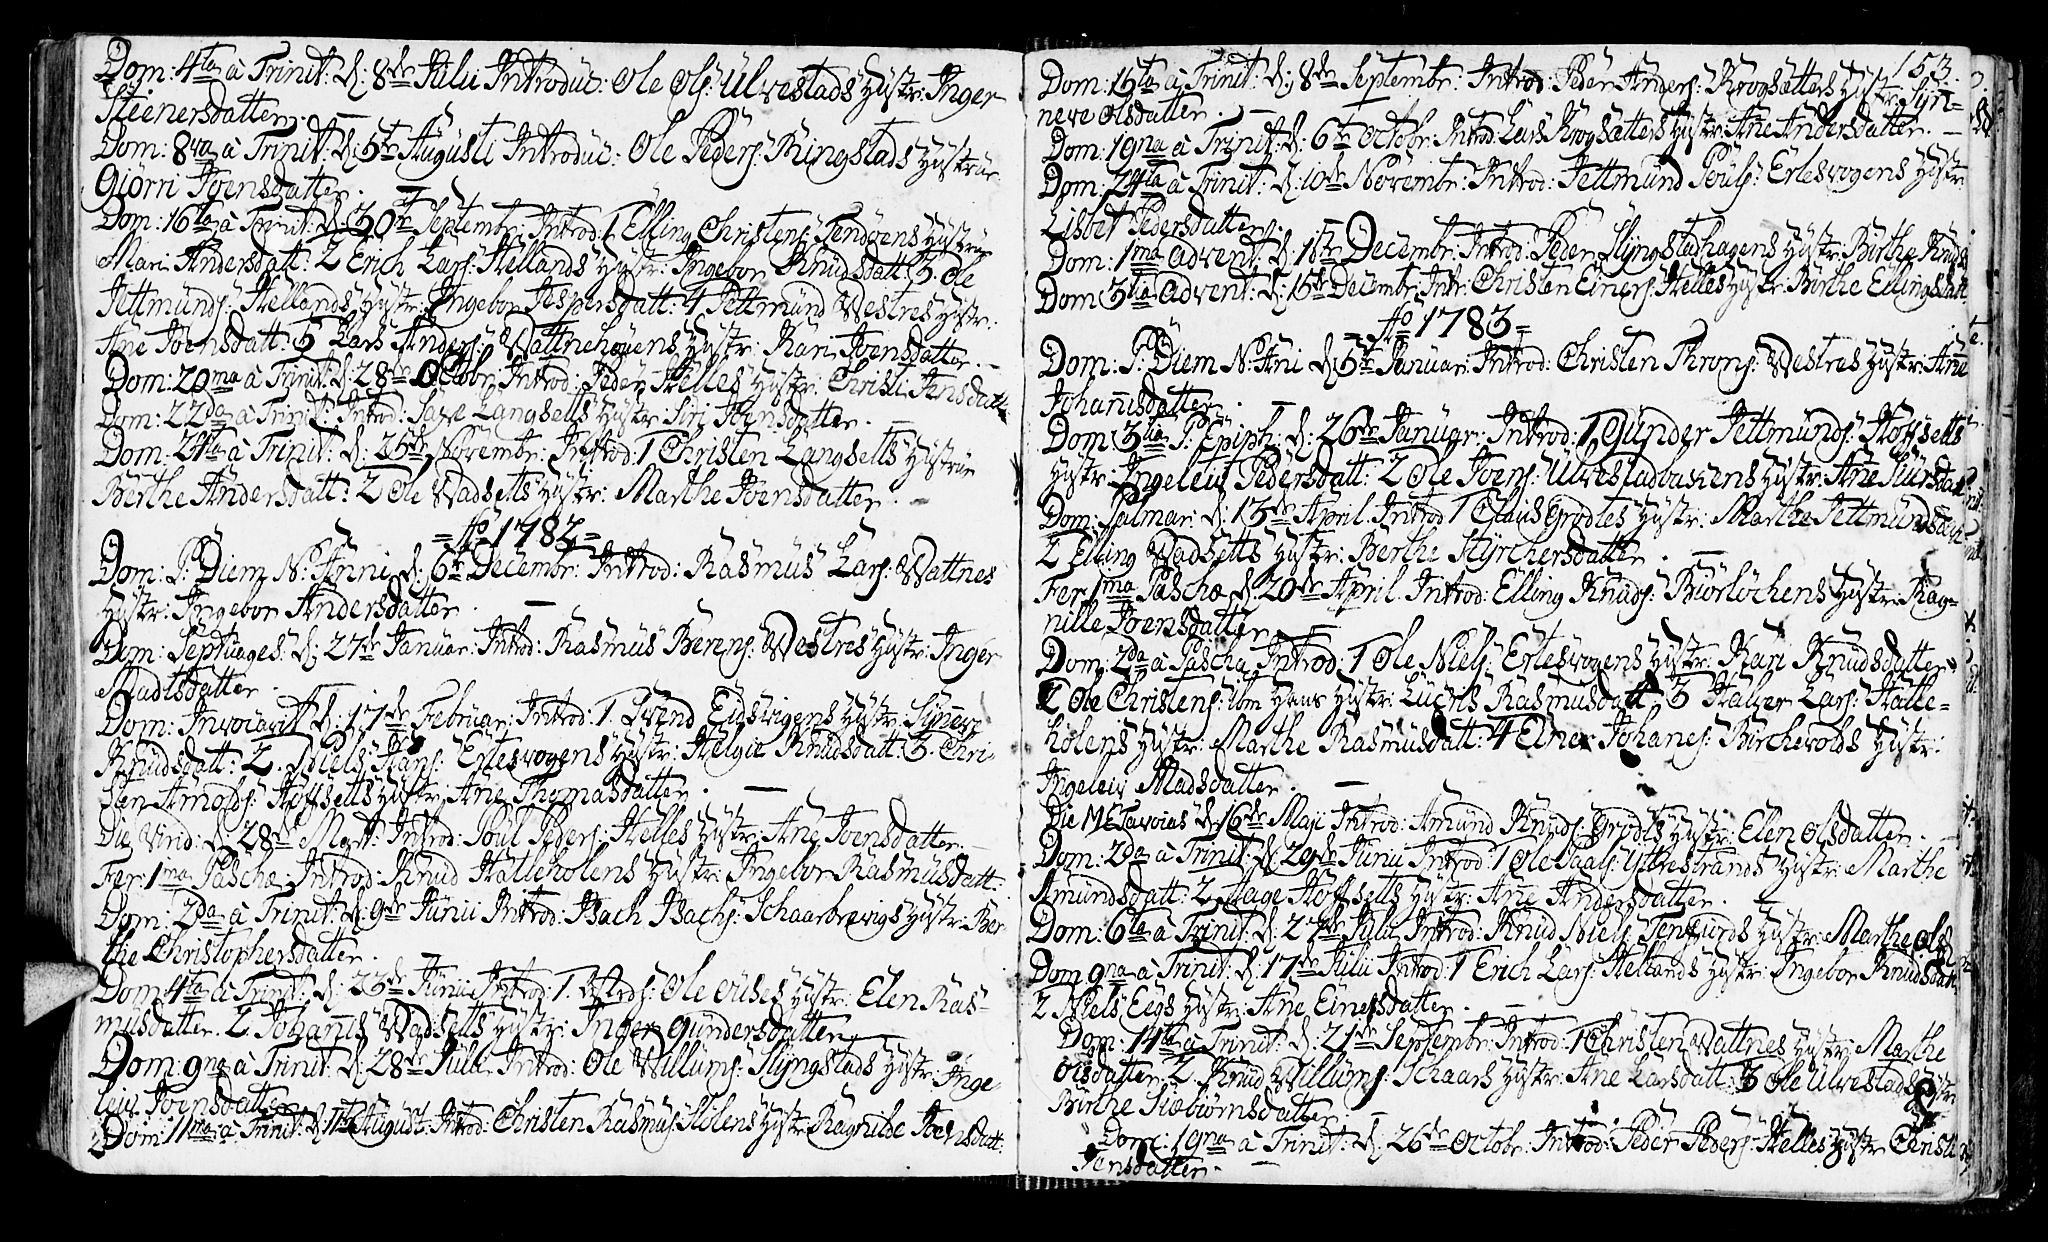 Dom: 4ta à Trinit: d: 8de Julii Introduc: Ole Ols: Ulvestads Hustr: Inger
Steenersdatter. —
Dom: 8va à Trinit: d: 5te Augusti Introduc: Ole Peders: Ringstads Hustrue
Giørri Joensdatter. —
Dom: 16ta à Trinit: d: 30te Septembr: Introd: 1 Elling Christens: Hustrue
Mari Andersdatt: 2 Erich Lars: Hellands Hustr: Ingebor Knudsdatt: 3 Ole
Jettmunds: Hellands Hustr: Ingebor Jespersdatt: 4 Jettmund Westres Hustr:
Ane Joensdatt: 5 Lars Anders: Wattnehøuens Hustr: Kari Joensdatter. —
Dom: 20ma à Trinit: d: 28de Octobr: Introd: Peder Helles Hustr: Christi Jensdatt:
Dom: 22da à Trinit: Introd: Langsetts Hustr: Siri Joensdatter. —
Dom: 24ta à Trinit: d: 25de Novembr: Introd: 1 Christen Langsetts Hustrue
Berthe Andersdatt: 2 Ole Wadsetts Hustr: Marthe Joensdatter. —
= Ao 1782 =
Dom: P: Diem N: Anni d: 6te Decembr: Introd: Rasmus Lars: Wattnes
Hustr: Ingebor Andersdatter. —
Dom: Septuages: d: 27de Januar: Introd: Rasmus Berens: Westres Hustr: Inger
Madtsdatter.
Dom: Invocavit d: 17de Februar: Introd: 1. Svend Eidsvigens Hustr: Synneve
Knudsdatt: 2. Niels Hans: Ertesvogens Hustr: Helgie Knudsdatt: 3. Chri-
sten Arnolds: Hoffsetts Hustr: Ane Thomasdatter. —
Die Virid: d: 28de Mart: Introd: Poul Peders: Helles Hustr: Ane Joensdatter. —
Fer: 1ma Paschæ: Introd: Knud Halleholens Hustr: Ingebor Rasmusdatt:
Dom: 2da à Trinit: d: 9de Junii Introd: Isach Isachs: Schaarbrevigs Hustr: Ber-
the Christophersdatter.
Dom: 4ta à Trinit: d: 23de Junii Introd: 1. Ole Hustr: Elen Ras-
musdatter. 2 Johannis Wadsetts Hustr: Inger Gundersdatter.
Dom: 9na à Trinit: d: 28de Julii Introd: Ole Willums: Slyngstads Hustr: Inge-
leiv Joensdatter.
Dom: 11ma à Trinit: d: 11te August: Introd: Christen Rasmus: Holens Hustr: Ragnilde Joensdatt:
153.
Dom: 15ta à Trinit: d: 8de Septembr: Introd: Peder Anders: Krogsætters Hustr: Syn-
neve Olsdatter. —
Dom: 19na à Trinit: d: 6te Octobr: Introd: Lars Krogsætters Hustr: Ane Andersdatter. —
Dom: 24ta à Trinit: d: 10de Novembr: Introd: Jettmund Pouls: Ertesvogens Hustr:
Lisbet Pedersdatter.
Dom: 1ma Advent: d: 1ste Decembr: Introd: Peder Slyngstadhagens Hustr: Birthe Knuds:
Dom: 3tia Advent: d: 15de Decembr: Intr: Christen Einers: Helles Hustr: Birthe Ellingsdatt:
= Ao 1783 =
Dom: P: Diem N: Ani d: 5te Januar: Introd: Christen Throns: Westres Hustr: Ane
Johannisdatter. —
Dom: 3tia P: Epiph: d: 26de Januar: Introd: 1 Gunder Jettmunds: Hoffsetts
Hustr: Ingeleiv Pedersdatt: 2 Ole Joens: Hustr: Ane
Dom: Palmar: d: 13de April: Introd: 1 Claus Grodtes Hustr: Marthe Jettmundsdatt:
2 Elling Wadsetts Hustr: Berthe Styrchersdatter. —
Fer: 1ma Paschæ d: 20de April: Introd: Elling Knuds: Biørlochens Hustr: Rag-
nille Joensdatter. —
Dom: 2da à Pascha Introd: 1 Ole Niels: Ertesvogens Hustr: Kari Knudsdatter.
2 Ole Christens: Hustr: Rasmusdatt: 3 Halvor Lars: Halle-
holens Hustr: Marthe Rasmusdatt: 4 Einer Johanes: Bircherolds Hustr:
Ingeleiv Madsdatter. —
Die d: 16de Maji Introd: Amund Knuds: Grodts Hustr: Elen Olsdatter. —
Dom: 2da à Trinit: d: 29de Junii Introd: 1 Ole Paals: Yttrestrands Hustr: Marthe
Amundsdatt: 2 Aage Hoffsetts Hustr: Ane Andersdatter. —
Dom: 6ta à Trinit: d: 27de Julii Introd: Knud Niels: Tenfiords Hustr: Marthe Ols
Dom: 9na à Trinit: d: 17de Julii Introd: 1 Erich Lars: Hellands Hustr: Ingebor Knudsdatt:
2 Niels Eegs Hustr: Ane Einersdatter. —
Dom: 14ta à Trinit: d: 21de Septembr: Introd: 1 Christen Wattnes Hustr: Marthe
Olsdatter 2 Knud Willums: Schaars Hustr: Ane Larsdatt: 3 Ole Ulvestads Hustr:
Birthe Siebiørnsdatter.
Dom: 19na à Trinit: d: 26de Octobr: Introd: Peder Peders: Helles Hustr: Christi
Jensdatter. —